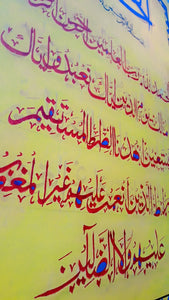 لله رب العالمين الرحمن
ملك يوم الدين إياك نعبد وإياك
نستعين اهدنا الصراط المستقيم
صراط الذين أنعمت عليهم غير المغضوب
عليهم ولا الضالين